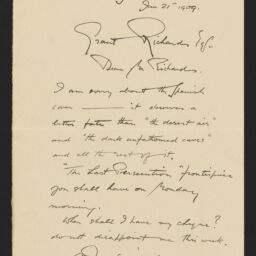 Jan 25th 1909.
Grant Richards Esq.
Dear Mr Richards.
I am sorry about the Spanish
cover ——— it deserves a
better fate than "the desert air"
and "the dark unfathomed caves"
and all the rest of it.
"The Last Persecution" frontispiece
you shall have on Monday
morning.
When shall I have my cheque?
do not disappoint me this week.